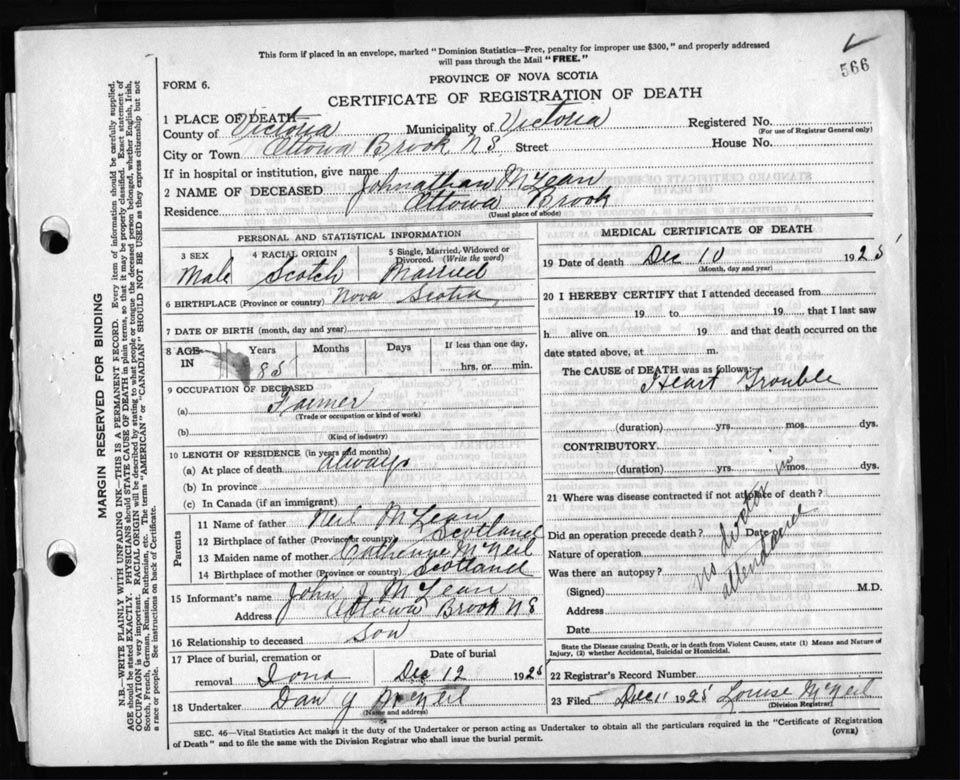 This form if placed in an envelope, marked "Dominion Statistics—Free, penalty for improper use $300," and properly addressed
will pass through the Mail "FREE."
566
PROVINCE OF NOVA SCOTIA
FORM 6.
CERTIFICATE OF REGISTRATION OF DEATH
1 PLACE OF DEATH
County of Victoria Municipality of Victoria Registered No.
(For use of Registrar General only)
City or Town Ottowa Brook NS Street House No.
If in hospital or institution, give name
2 NAME OF DECEASED Johnathan McLean
Residence Ottowa Brook
(Usual place of abode)
PERSONAL AND STATISTICAL INFORMATION
3 SEX 4 RACIAL ORIGIN 5 Single, Married, Widowed or Divorced. (Write the word)
Male Scotch Married
6 BIRTHPLACE (Province or country) Nova Scotia
7 DATE OF BIRTH (month, day and year)
8 AGE IN Years Months Days If less than one day,
85 hrs. or min.
9 OCCUPATION OF DECEASED
(a) Farmer
(Trade or occupation or kind of work)
(b)
(Kind of industry)
10 LENGTH OF RESIDENCE (in years and months)
(a) At place of death always
(b) In province
(c) In Canada (if an immigrant)
Parents
11 Name of father Neil McLean
12 Birthplace of father (Province or country) Scotland
13 Maiden name of mother Catherine McNeil
14 Birthplace of mother (Province or country) Scotland
15 Informant's name John J McLean
Address Ottowa Brook NS
16 Relationship to deceased Son
17 Place of burial, cremation or Date of burial
removal Iona Dec 12 1925
18 Undertaker Dan Y McNeil
(Name and address)
MEDICAL CERTIFICATE OF DEATH
19 Date of death Dec 10 1925
(Month, day and year)
20 I HEREBY CERTIFY that I attended deceased from
19 to 19 that I last saw
h alive on 19 and that death occurred on the
date stated above, at m.
The CAUSE of DEATH was as follows:
Heart Trouble
(duration) yrs. mos. dys.
CONTRIBUTORY.
(duration) yrs. mos. dys.
21 Where was disease contracted if not at place of death?
Did an operation precede death? Date
Nature of operation
Was there an autopsy?
no doctor
attendance
(Signed) M.D.
Address
Date
State the Disease causing Death, or in death from Violent Causes, state (1) Means and Nature of
Injury, (2) whether Accidental, Suicidal or Homicidal.
22 Registrar's Record Number
23 Filed Dec 11 1925 Louise McNeil
(Division Registrar)
SEC. 46—Vital Statistics Act makes it the duty of the Undertaker or person acting as Undertaker to obtain all the particulars required in the "Certificate of Registration
of Death" and to file the same with the Division Registrar who shall issue the burial permit.
(OVER)
MARGIN RESERVED FOR BINDING
N.B.—WRITE PLAINLY WITH UNFADING INK—THIS IS A PERMANENT RECORD. Every item of information should be carefully supplied.
AGE should be stated EXACTLY. PHYSICIANS should STATE CAUSE OF DEATH in plain terms, so that it may be properly classified. Exact statement of
OCCUPATION is very important. RACIAL ORIGIN will be described by stating to what people or tongue the deceased person belonged, whether English, Irish,
Scotch, French, German, Russian, Ruthenian, etc. The terms "AMERICAN" or "CANADIAN" SHOULD NOT BE USED as they express citizenship but not
a race or people. See instructions on back of Certificate.